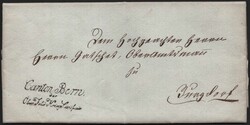 Dem Hochgeachten Herrn
Herrn Gatschet, Oberamtsmann
zu
Burgdorf
Canton Bern.